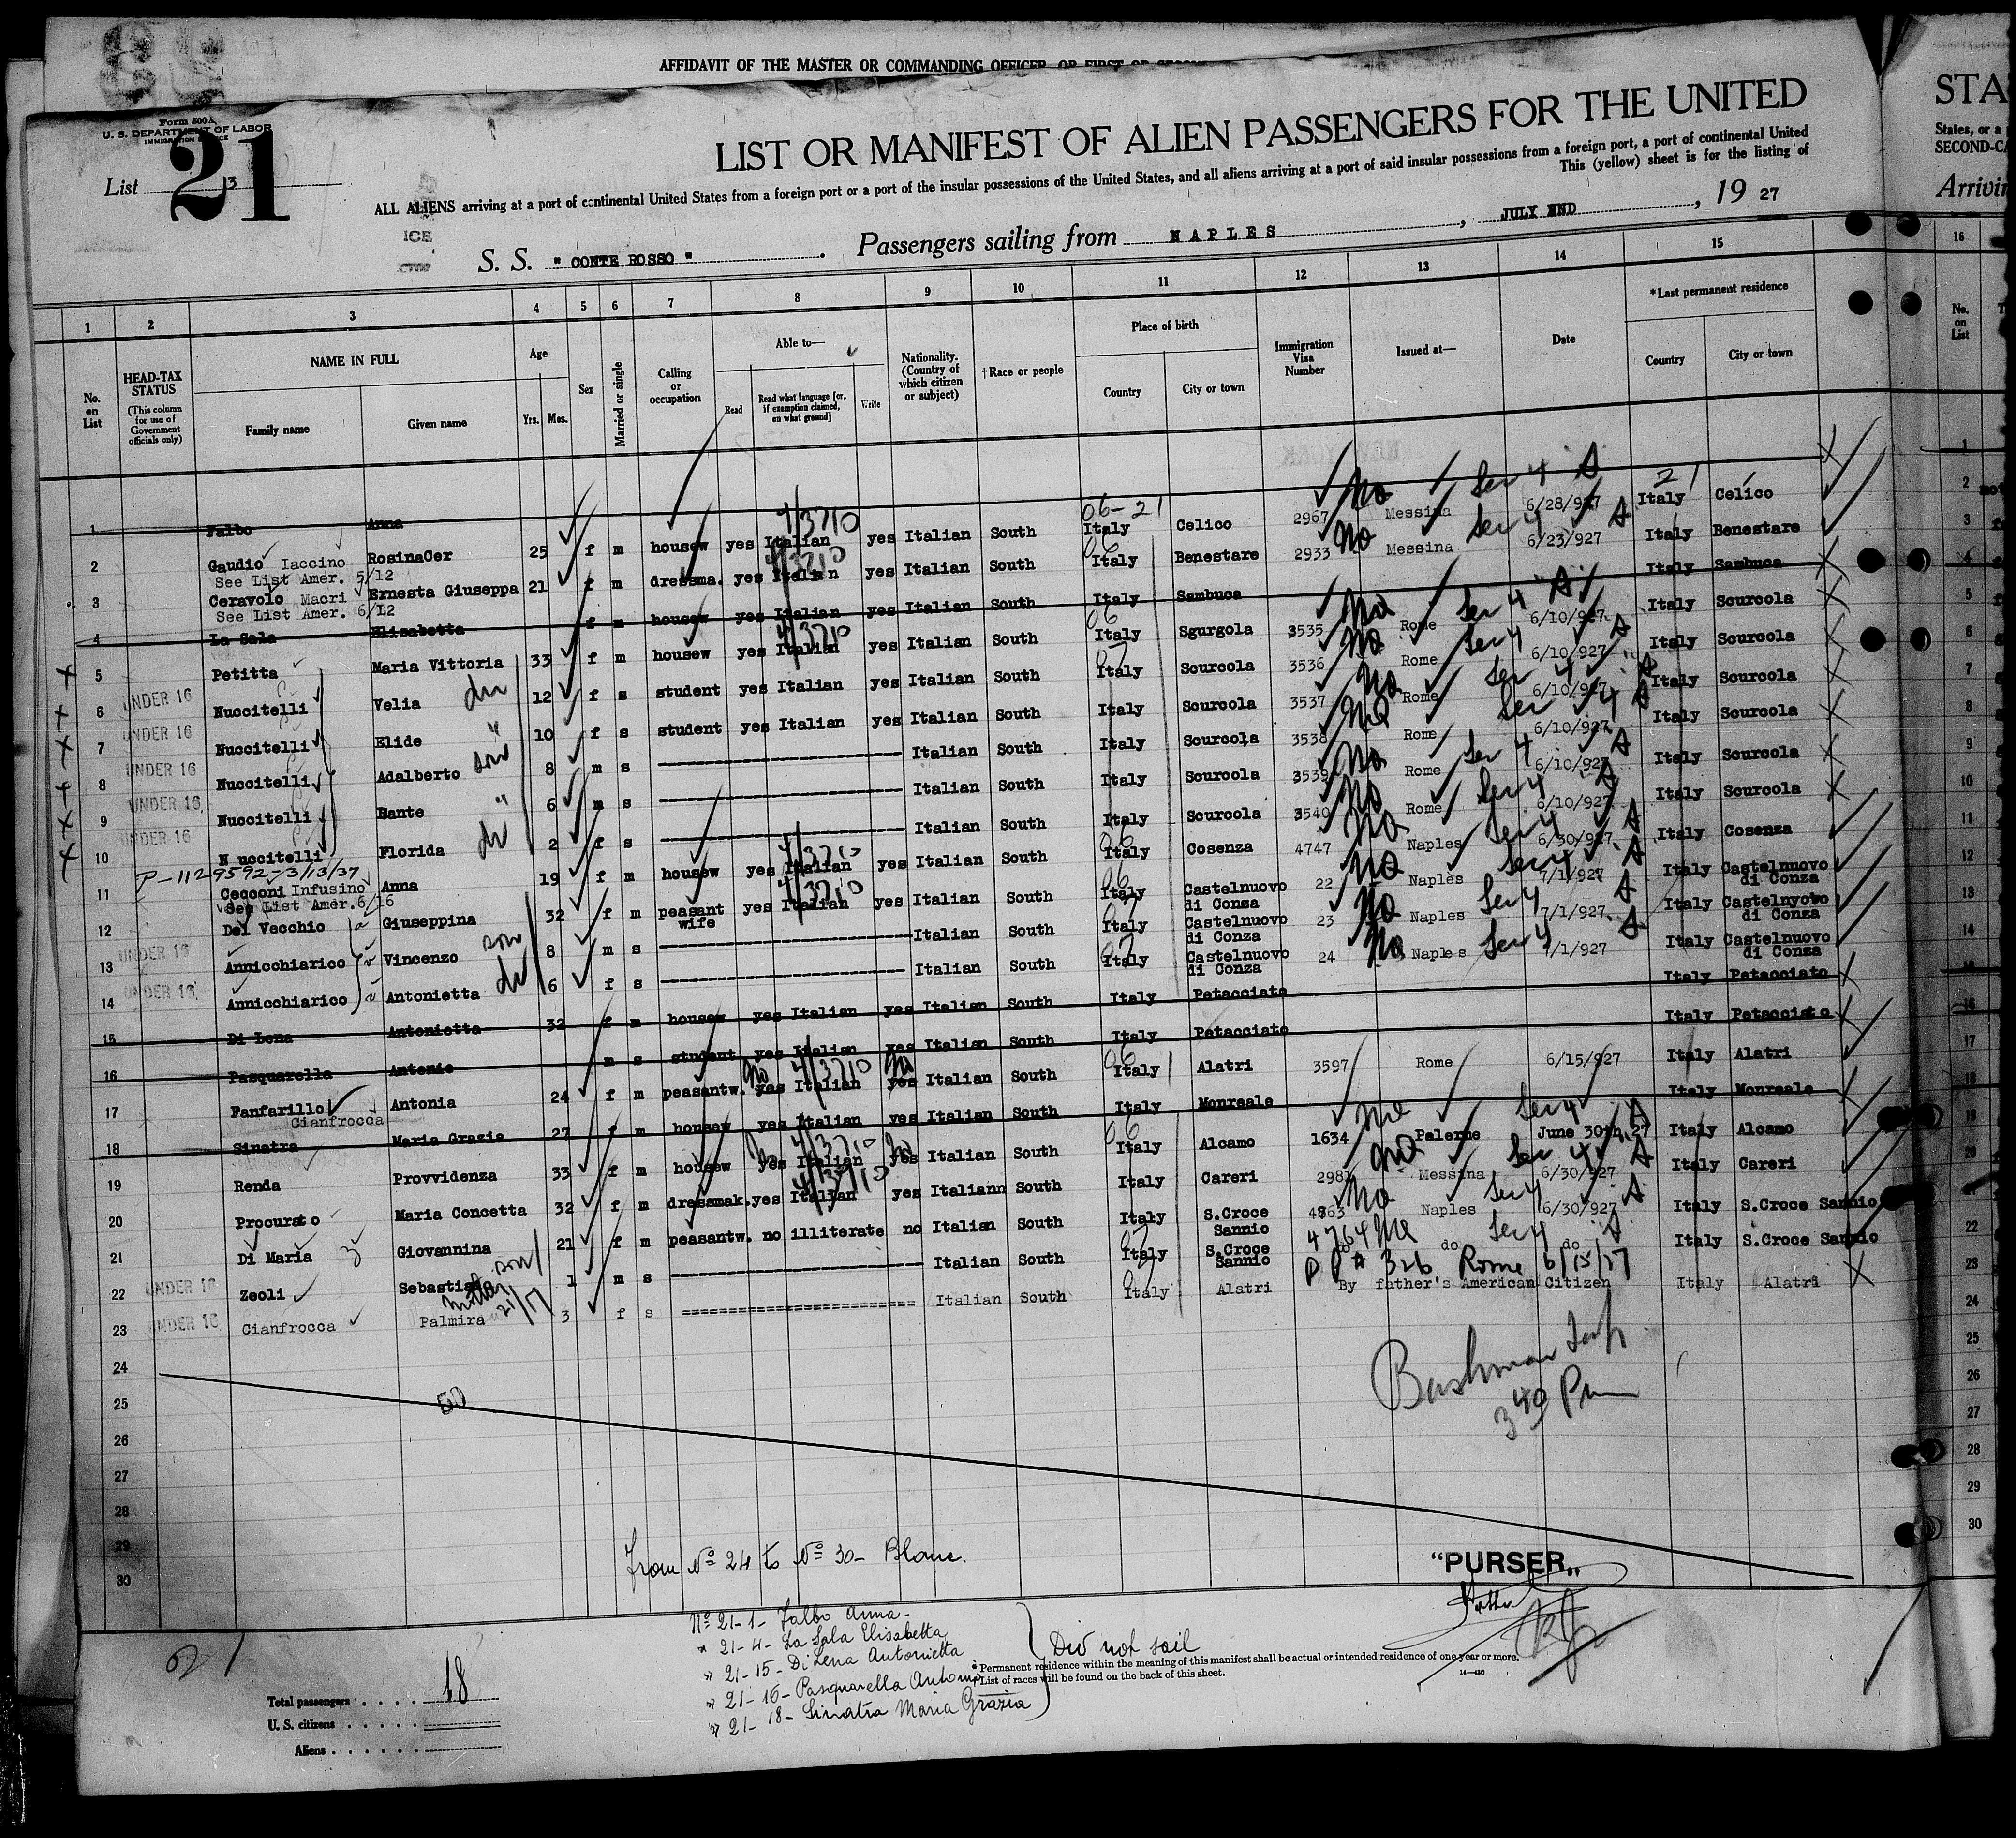 AFFIDAVIT OF THE MASTER OR COMMANDING OFFICER, OR FIRST OR
Form 500A
U. S. DEPARTMENT OF LABOR
IMMIGRATION SERVICE
List 13
21
LIST OR MANIFEST OF ALIEN PASSENGERS FOR THE UNITED
STA
ALL ALIENS arriving at a port of continental United States from a foreign port or a port of the insular possessions of the United States, and all aliens arriving at a port of said insular possessions from a foreign port, a port of continental United
States, or a
This (yellow) sheet is for the listing of
SECOND-CA
S. S. " CONTE ROSSO " . Passengers sailing from NAPLES , JULY 2ND , 19 27
Arrivin
1 2 3 4 5 6 7 8 9 10 11 12 13 14 15 16
No. on List
HEAD-TAX STATUS
(This column for use of Government officials only)
NAME IN FULL
Family name Given name
Age
Yrs. Mos.
Sex
Married or single
Calling or occupation
Able to—
Read
Read what language [or, if exemption claimed, on what ground]
Write
Nationality. (Country of which citizen or subject)
†Race or people
Place of birth
Country City or town
Immigration Visa Number
Issued at—
Date
*Last permanent residence
Country City or town
No. on List
1 Falbo Anna
2 Gaudio Iaccino RosinaCer 25 f m housew yes Italian yes Italian South Italy Celico 2967 Messina 6/28/927 Italy Celico
See List Amer. 5/12
3 Ceravolo Macri Ernesta Giuseppa 21 f m dressma. yes Italian yes Italian South Italy Benestare 2933 Messina 6/23/927 Italy Benestare
See List Amer. 6/12
4 La Sala Elisabetta f m housew yes Italian yes Italian South Italy Sambuca Italy Sambuca
5 Petitta Maria Vittoria 33 f m housew yes Italian yes Italian South Italy Sgurgola 3535 Rome 6/10/927 Italy Scurcola
6 UNDER 16 Nuccitelli Velia 12 f s student yes Italian yes Italian South Italy Scurcola 3536 Rome 6/10/927 Italy Scurcola
7 UNDER 16 Nuccitelli Elide " 10 f s student yes Italian yes Italian South Italy Scurcola 3537 Rome 6/10/927 Italy Scurcola
8 UNDER 16 Nuccitelli Adalberto son 8 m s Italian South Italy Scurcola 3538 Rome 6/10/927 Italy Scurcola
9 UNDER 16 Nuccitelli Bante " 6 m s Italian South Italy Scurcola 3539 Rome 6/10/927 Italy Scurcola
10 UNDER 16 N uccitelli Florida 2 f s Italian South Italy Scurcola 3540 Rome 6/10/927 Italy Scurcola
P-1129592-3/13/37
11 Cecconi Infusino Anna 19 f m housew yes Italian yes Italian South Italy Cosenza 4747 Naples 6/30/927 Italy Cosenza
See List Amer.6/16
12 Del Vecchio Giuseppina 32 f m peasant wife yes Italian yes Italian South Italy Castelnuovo di Conza 22 Naples 7/1/927 Italy Castelnuovo di Conza
13 UNDER 16 Annicchiarico Vincenzo son 8 m s Italian South Italy Castelnuovo di Conza 23 Naples 7/1/927 Italy Castelnuovo di Conza
14 UNDER 16 Annicchiarico Antonietta 6 f s Italian South Italy Castelnuovo di Conza 24 Naples 7/1/927 Italy Castelnuovo di Conza
15 Di Lena Antonietta 32 f m housew yes Italian yes Italian South Italy Petacciato Italy Petacciato
16 Pasquarella Antonio m s student yes Italian yes Italian South Italy Petacciato Italy Petacciato
17 Fanfarillo Antonia 24 f m peasantw. yes Italian yes Italian South Italy Alatri 3597 Rome 6/15/927 Italy Alatri
Cianfrocca
18 Sinatra Maria Grazia 27 f m housew yes Italian yes Italian South Italy Monreale Italy Monreale
19 Renda Provvidenza 33 f m housew yes Italian yes Italian South Italy Alcamo 1634 Palermo June 30th 27 Italy Alcamo
20 Procurato Maria Concetta 32 f m dressmak. yes Italian yes Italiann South Italy Careri 2981 Messina 6/30/927 Italy Careri
21 Di Maria Giovannina 21 f m peasantw. no illiterate no Italian South Italy S.Croce Sannio 4763 Naples 6/30/927 Italy S.Croce Sannio
22 UNDER 16 Zeoli Sebastiano son 1 m s Italian South Italy S.Croce Sannio 4764 do do Italy S.Croce Sannio
PP # 326 Rome 6/15/27
23 UNDER 16 Cianfrocca Palmira 3 f s Italian South Italy Alatri By father's American Citizen Italy Alatri
mother 21/17
24
25
26
27
28
29
30
Bushman Insp
3 40 Pm
From No 24 to No 30 - Blanc.
"PURSER„
No 21-1- Falbo Anna -
" 21-4- La Sala Elisabetta
" 21-15- Di Lena Antonietta
" 21-16- Pasquarella Antonio
" 21-18- Sinatra Maria Grazia
Did not sail
* Permanent residence within the meaning of this manifest shall be actual or intended residence of one year or more.
† List of races will be found on the back of this sheet.
14—430
21
Total passengers . . . . 18
U. S. citizens . . . . .
Aliens . . . . . .